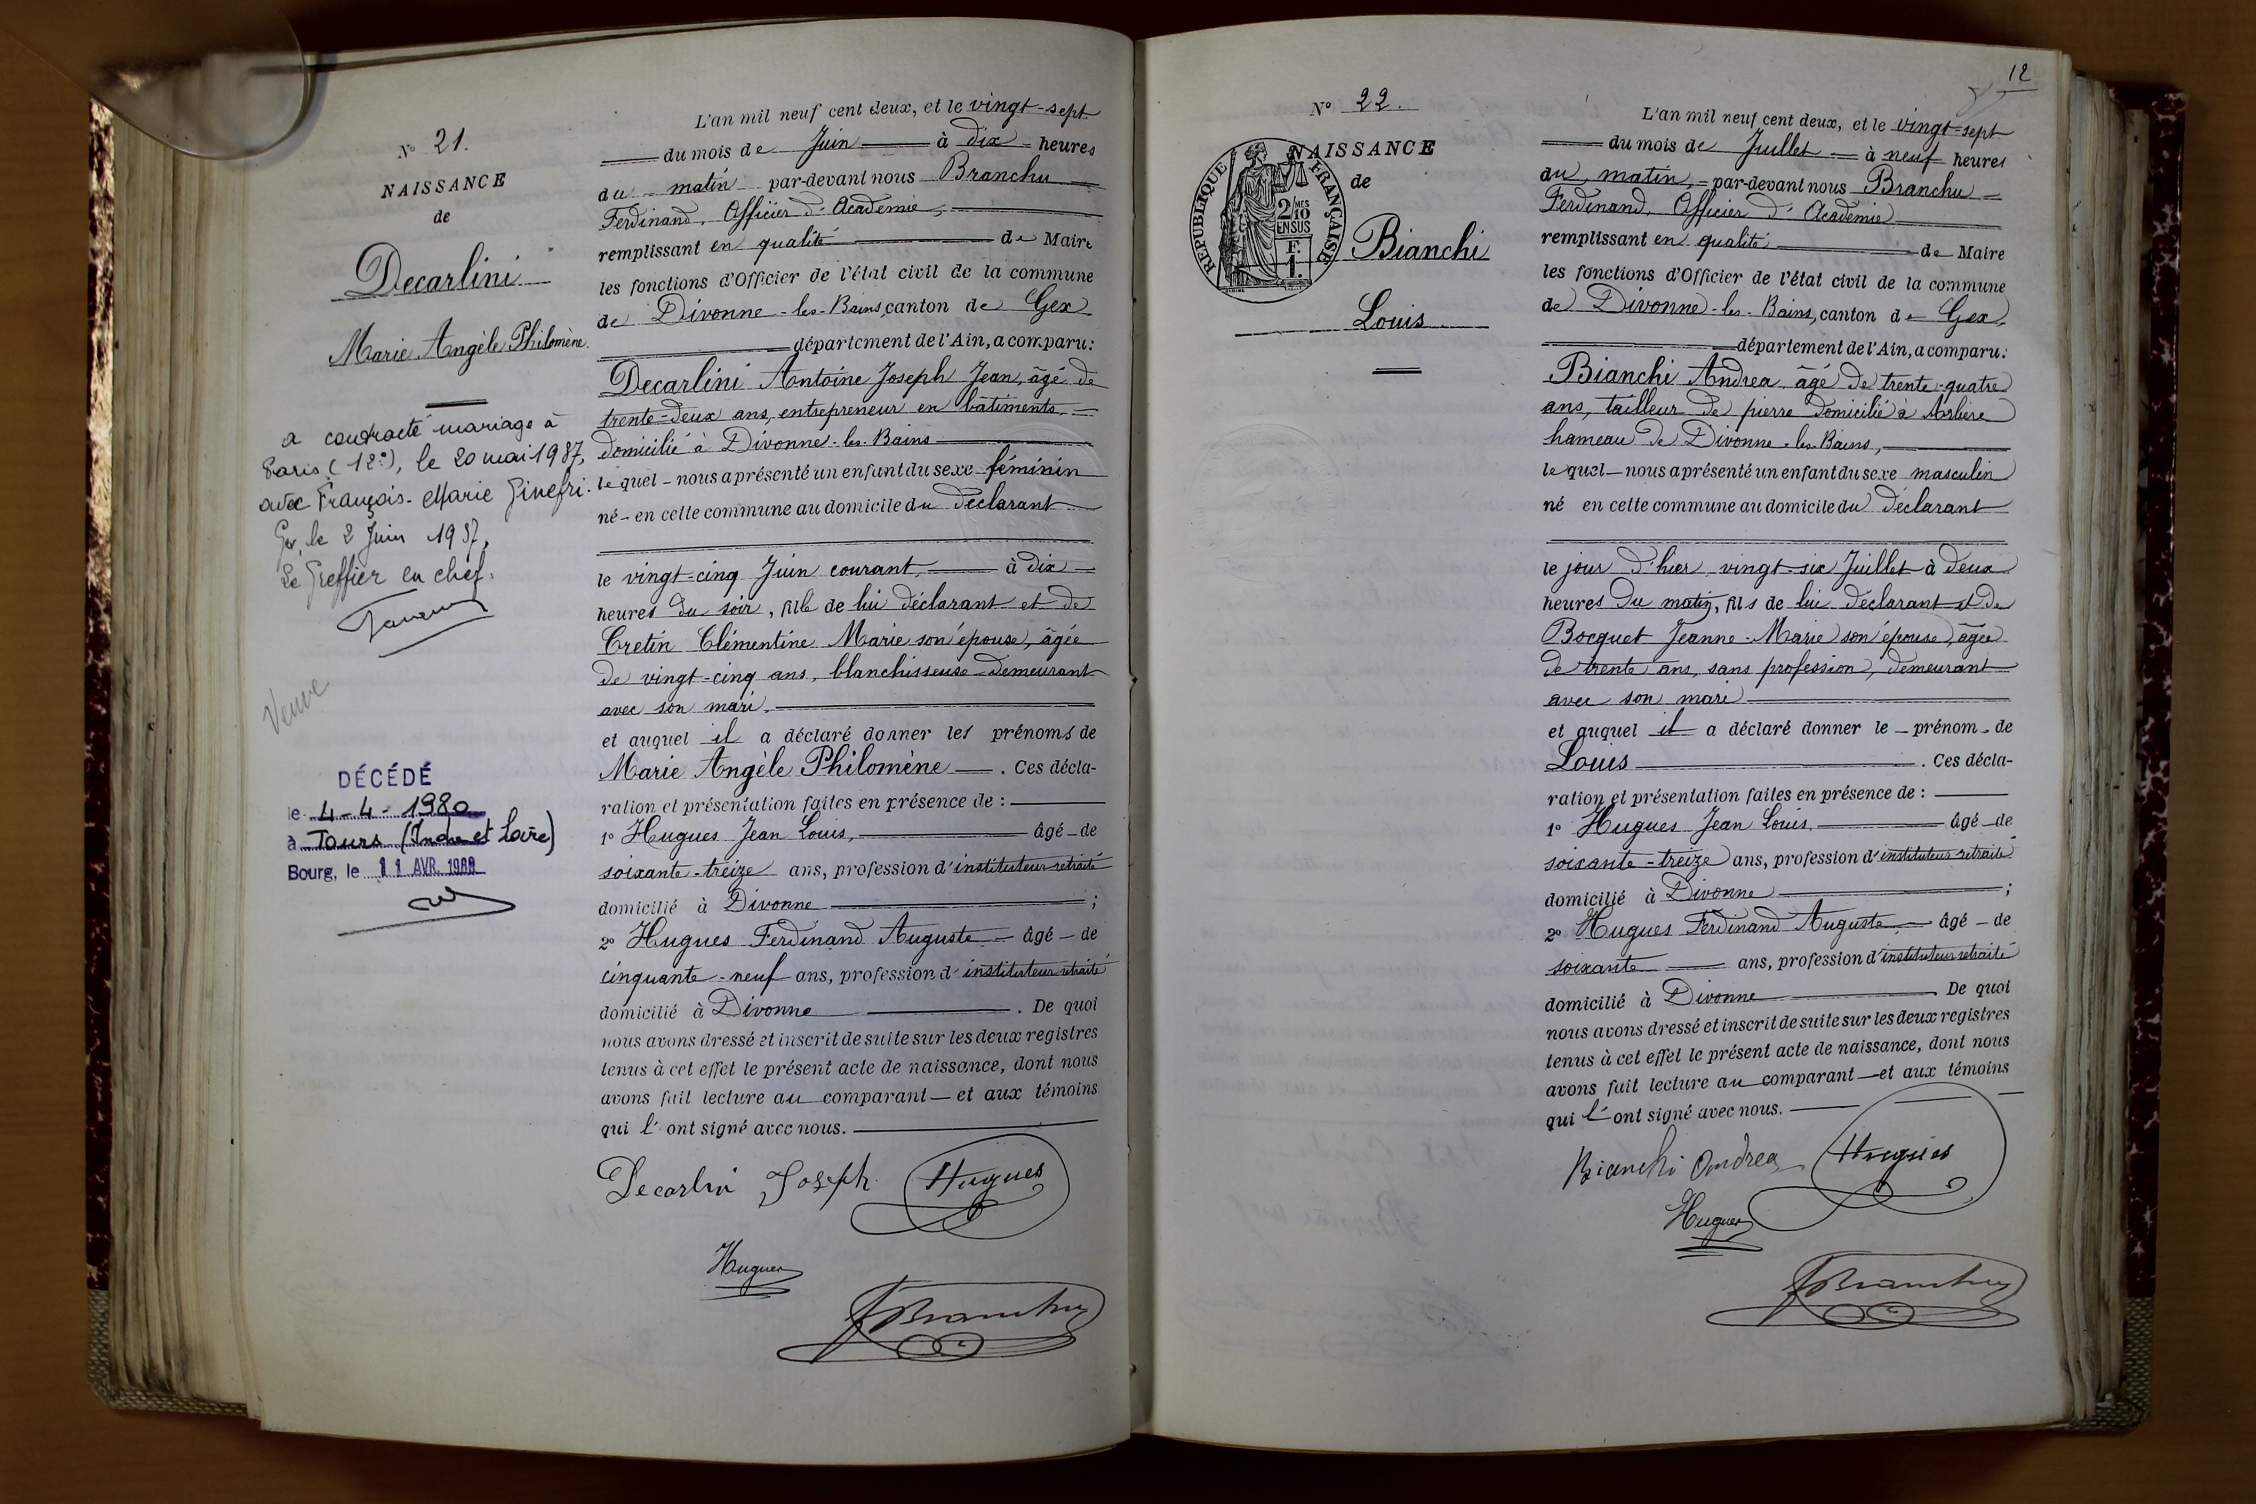 N° 21.
NAISSANCE
de
Decarlini
Marie Angèle Philomène.
a contracté mariage à
Paris (12e), le 20 mai 1937,
avec François-Marie Ginefri.
Gex, le 2 Juin 1937,
Le Greffier en chef.
Veuve
DÉCÉDÉ
le 4-4-1980
à Tours (Indre et Loire)
Bourg, le 11 AVR. 1980
L'an mil neuf cent deux, et le vingt-sept
du mois de Juin à dix heures
du matin par-devant nous Branchu
Ferdinand, Officier d'Académie,
remplissant en qualité de Maire
les fonctions d'Officier de l'état civil de la commune
de Divonne-les-Bains, canton de Gex
département de l'Ain, a comparu:
Decarlini Antoine Joseph Jean, âgé de
trente-deux ans, entrepreneur en bâtiments,
domicilié à Divonne-les-Bains
lequel nous a présenté un enfant du sexe féminin
né en cette commune au domicile du déclarant
le vingt-cinq Juin courant, à dix
heures du soir, fille de lui déclarant et de
Cretin Clémentine Marie son épouse, âgée
de vingt-cinq ans, blanchisseuse demeurant
avec son mari.
et auquel il a déclaré donner les prénoms de
Marie Angèle Philomène. Ces décla-
ration et présentation faites en présence de :
1° Hugues Jean Louis, âgé de
soixante-treize ans, profession d'instituteur retraité
domicilié à Divonne ;
2° Hugues Ferdinand Auguste âgé de
cinquante-neuf ans, profession d'instituteur retraité
domicilié à Divonne. De quoi
nous avons dressé et inscrit de suite sur les deux registres
tenus à cet effet le présent acte de naissance, dont nous
avons fait lecture au comparant et aux témoins
qui l'ont signé avec nous.
Decarlini Joseph Hugues
Hugues
Branchu
12
N° 22.
NAISSANCE
de
REPUBLIQUE FRANÇAISE
2 MES
10
EN SUS
F.
1.
Bianchi
Louis
L'an mil neuf cent deux, et le vingt-sept
du mois de Juillet à neuf heures
du matin, par-devant nous Branchu
Ferdinand, Officier d'Académie
remplissant en qualité de Maire
les fonctions d'Officier de l'état civil de la commune
de Divonne-les-Bains, canton de Gex,
département de l'Ain, a comparu:
Bianchi Andrea âgé de trente-quatre
ans, tailleur de pierre domicilié à Arbère
hameau de Divonne-les-Bains,
lequel nous a présenté un enfant du sexe masculin
né en cette commune au domicile du déclarant
le jour d'hier vingt-six Juillet à deux
heures du matin, fils de lui déclarant et de
Bocquet Jeanne-Marie son épouse, âgée
de trente ans, sans profession, demeurant
avec son mari
et auquel il a déclaré donner le prénom de
Louis. Ces décla-
ration et présentation faites en présence de :
1° Hugues Jean Louis, âgé de
soixante-treize ans, profession d'instituteur retraité
domicilié à Divonne ;
2° Hugues Ferdinand Auguste âgé de
soixante ans, profession d'instituteur retraité
domicilié à Divonne. De quoi
nous avons dressé et inscrit de suite sur les deux registres
tenus à cet effet le présent acte de naissance, dont nous
avons fait lecture au comparant et aux témoins
qui l'ont signé avec nous.
Bianchi Andrea Hugues
Hugues
Branchu